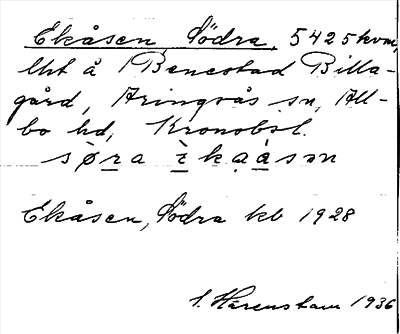 Ekåsen, Södra, 5425 kvm,
lht å Benestad Billa-
gård, Aringsås sn, All-
bo hd, Kronobsl.
Ekåsen, Södra kb 1928
S. Harenstam 1936